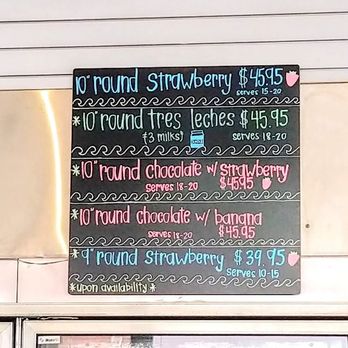 10" round strawberry $45.95
serves 15-20
*10" round tres leches $45.95
(3 milks) serves 18-20
*10" round chocolate w/ strawberry
serves 18-20 $45.95
*10" round chocolate w/ banana
serves 18-20 $45.95
*9" round strawberry $39.95
serves 10-15
*upon availability*